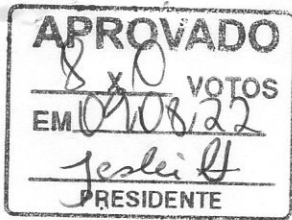 APROVADO
8 x 0 VOTOS
EM 09/08/22
PRESIDENTE